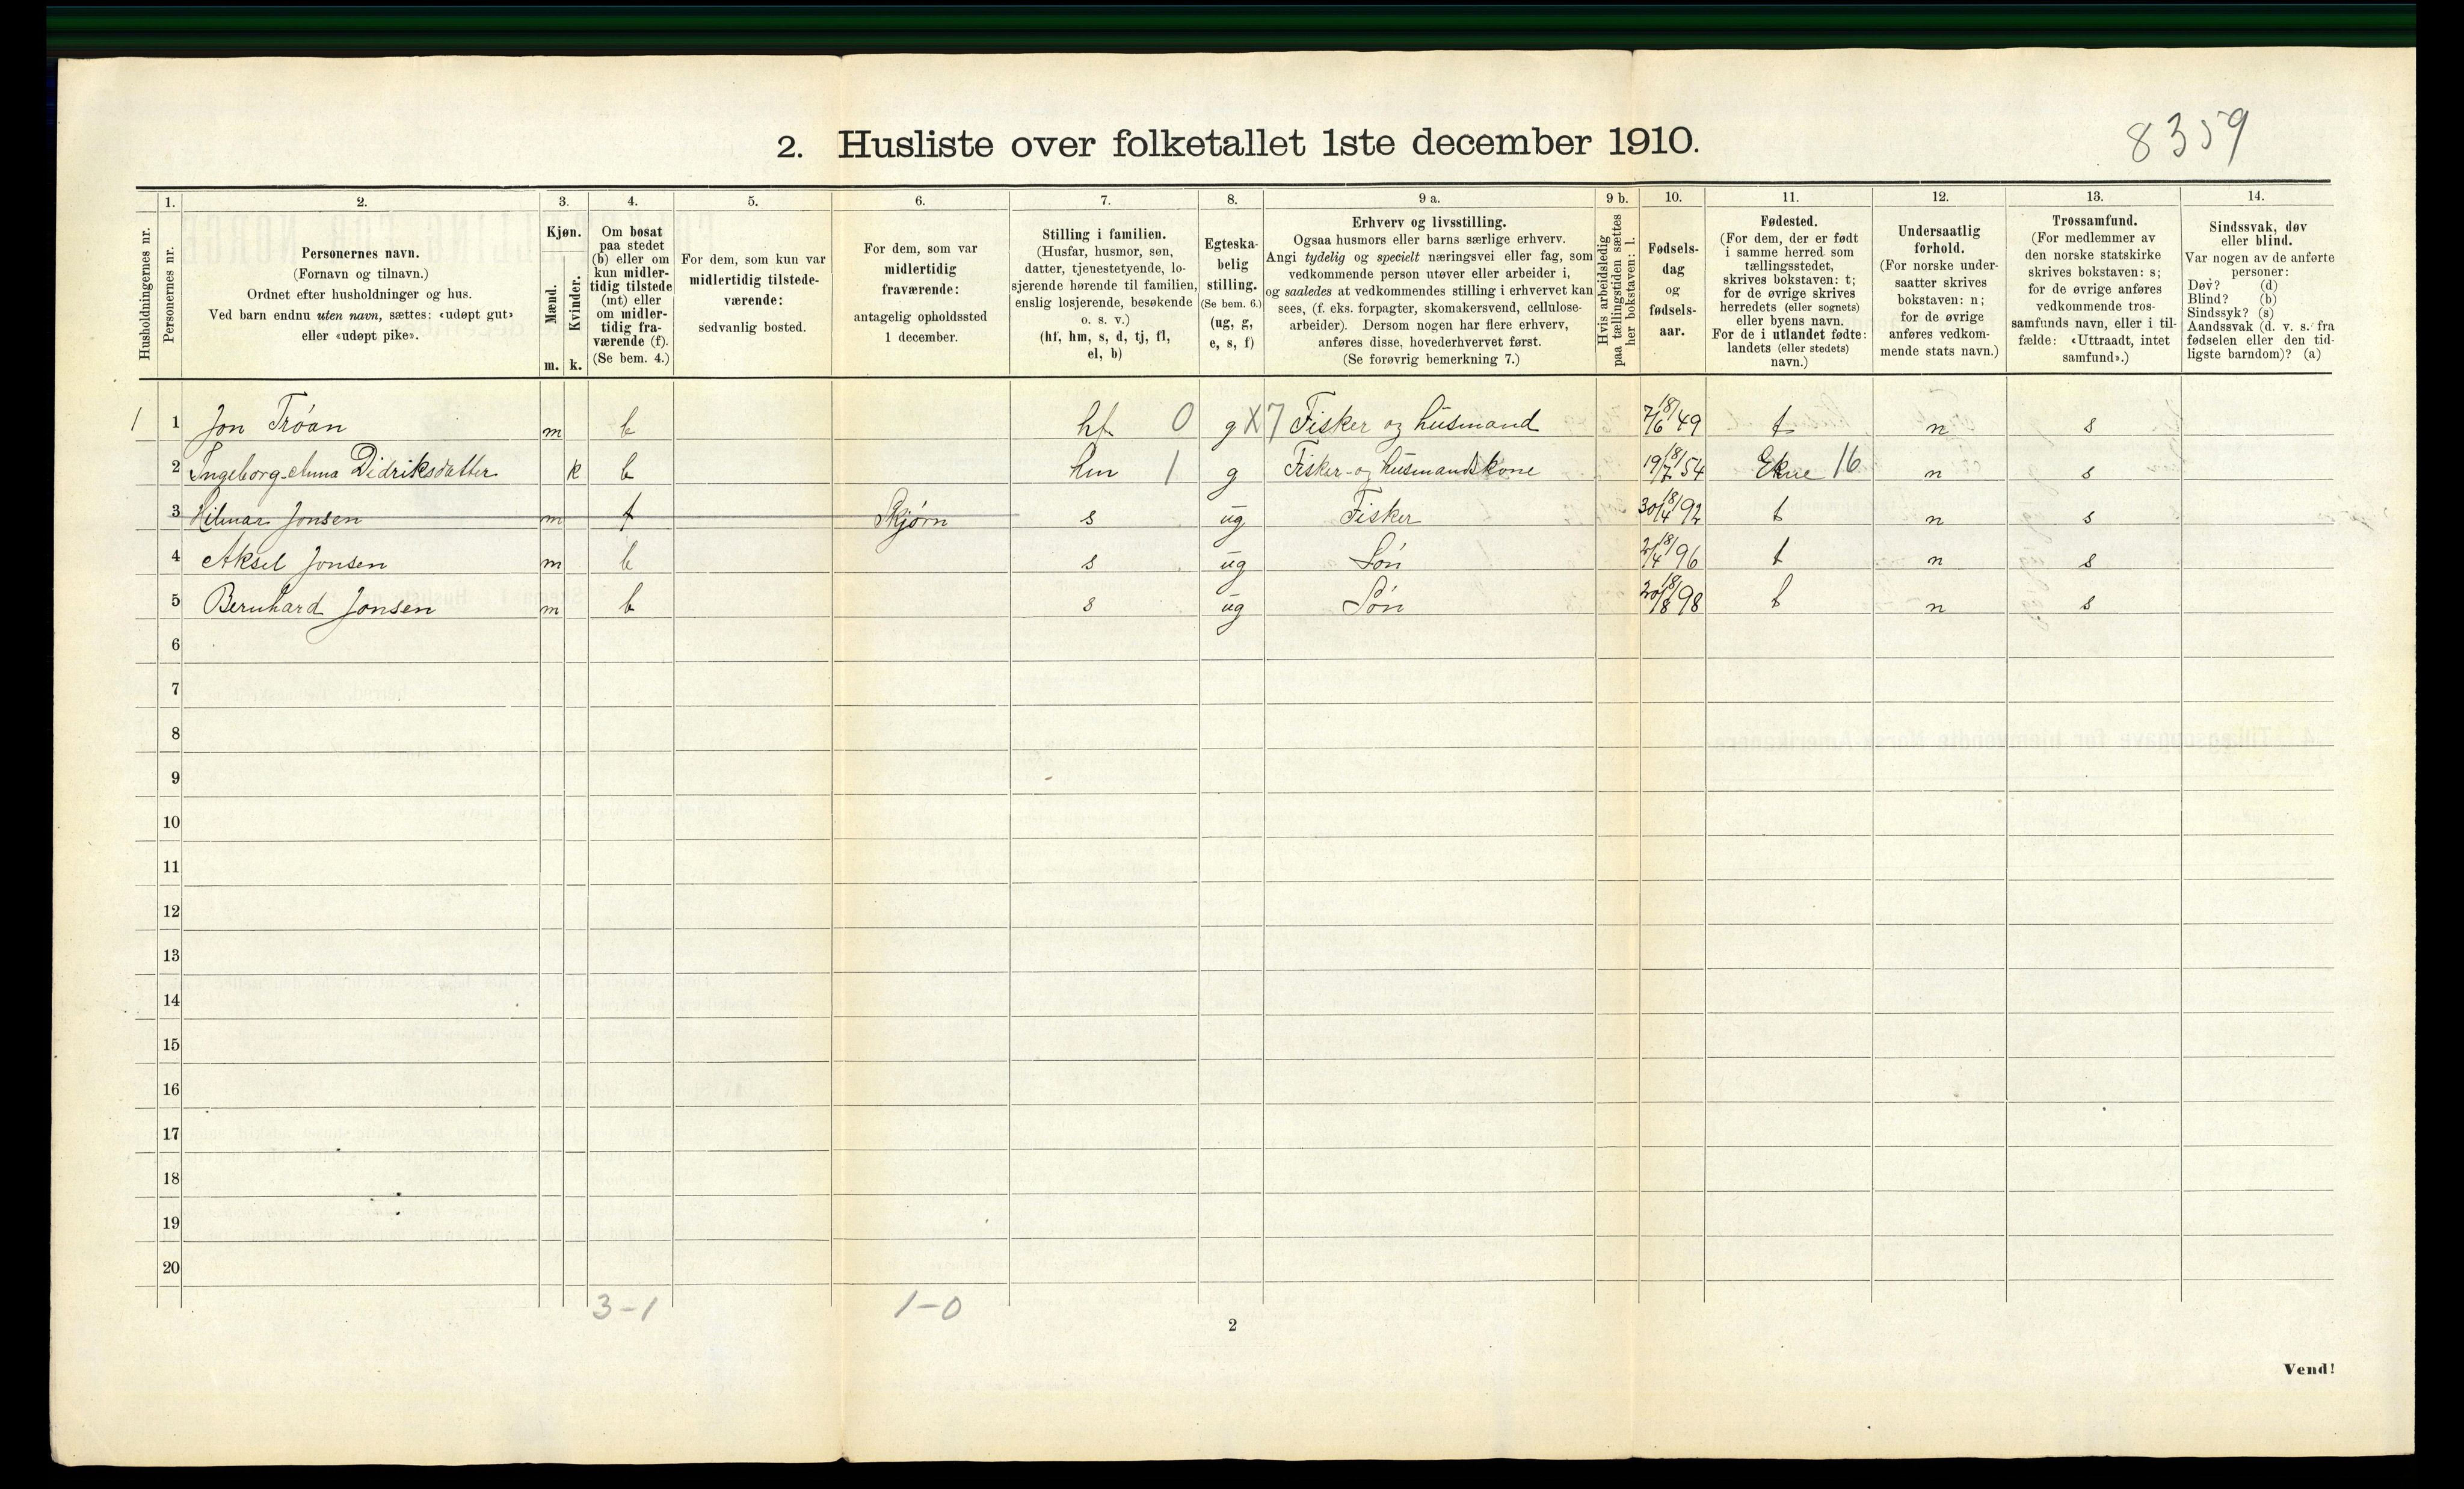 8359
2. Husliste over folketallet 1ste december 1910.
Husholdningernes nr.
1.
Personernes nr.
2.
Personernes navn.
(Fornavn og tilnavn.)
Ordnet efter husholdninger og hus.
Ved barn endnu uten navn, sættes: «udøpt gut»
eller «udøpt pike».
3.
Kjøn.
Mænd.
Kvinder.
m. k.
4.
Om bosat
paa stedet
(b) eller om
kun midler-
tidig tilstede
(mt) eller
om midler-
tidig fra-
værende (f).
(Se bem. 4.)
5.
For dem, som kun var
midlertidig tilstede-
værende:
sedvanlig bosted.
6.
For dem, som var
midlertidig
fraværende:
antagelig opholdssted
1 december.
7.
Stilling i familien.
(Husfar, husmor, søn,
datter, tjenestetyende, lo-
sjerende hørende til familien,
enslig losjerende, besøkende
o. s. v.)
(hf, hm, s, d, tj, fl,
el, b)
8.
Egteska-
belig
stilling.
(Se bem. 6.)
(ug, g,
e, s, f)
9 a.
Erhverv og livsstilling.
Ogsaa husmors eller barns særlige erhverv.
Angi tydelig og specielt næringsvei eller fag, som
vedkommende person utøver eller arbeider i,
og saaledes at vedkommendes stilling i erhvervet kan
sees, (f. eks. forpagter, skomakersvend, cellulose-
arbeider). Dersom nogen har flere erhverv,
anføres disse, hovederhvervet først.
(Se forøvrig bemerkning 7.)
9 b.
Hvis arbeidsledig
paa tællingstiden sættes
her bokstaven: l.
10.
Fødsels-
dag
og
fødsels-
aar.
11.
Fødested.
(For dem, der er født
i samme herred som
tællingsstedet,
skrives bokstaven: t;
for de øvrige skrives
herredets (eller sognets)
eller byens navn.
For de i utlandet fødte:
landets (eller stedets)
navn.)
12.
Undersaatlig
forhold.
(For norske under-
saatter skrives
bokstaven: n;
for de øvrige
anføres vedkom-
mende stats navn.)
13.
Trossamfund.
(For medlemmer av
den norske statskirke
skrives bokstaven: s;
for de øvrige anføres
vedkommende tros-
samfunds navn, eller i til-
fælde: «Uttraadt, intet
samfund».)
14.
Sindssvak, døv
eller blind.
Var nogen av de anførte
personer:
Døv? (d)
Blind? (b)
Sindssyk? (s)
Aandssvak (d. v. s. fra
fødselen eller den tid-
ligste barndom)? (a)
1 1 Jon Tróan m b hf 0 g X7 Fisker og husmand 7/6 18/49 t n s
2 Ingeborg Anna Didriksdatter k b hm 1 g Fisker- og husmandskone 19/7 18/54 Ekne 16 n s
3 Hilmar Jonsen m f Skjørn s ug Fisker 30/4 18/92 t n s
4 Aksel Jonsen m b s ug Søn 2/4 18/96 t n s
5 Bernhard Jonsen m b s ug Søn 20/8 18/98 t n s
6
7
8
9
10
11
12
13
14
15
16
17
18
19
20
3-1 1-0
2
Vend!